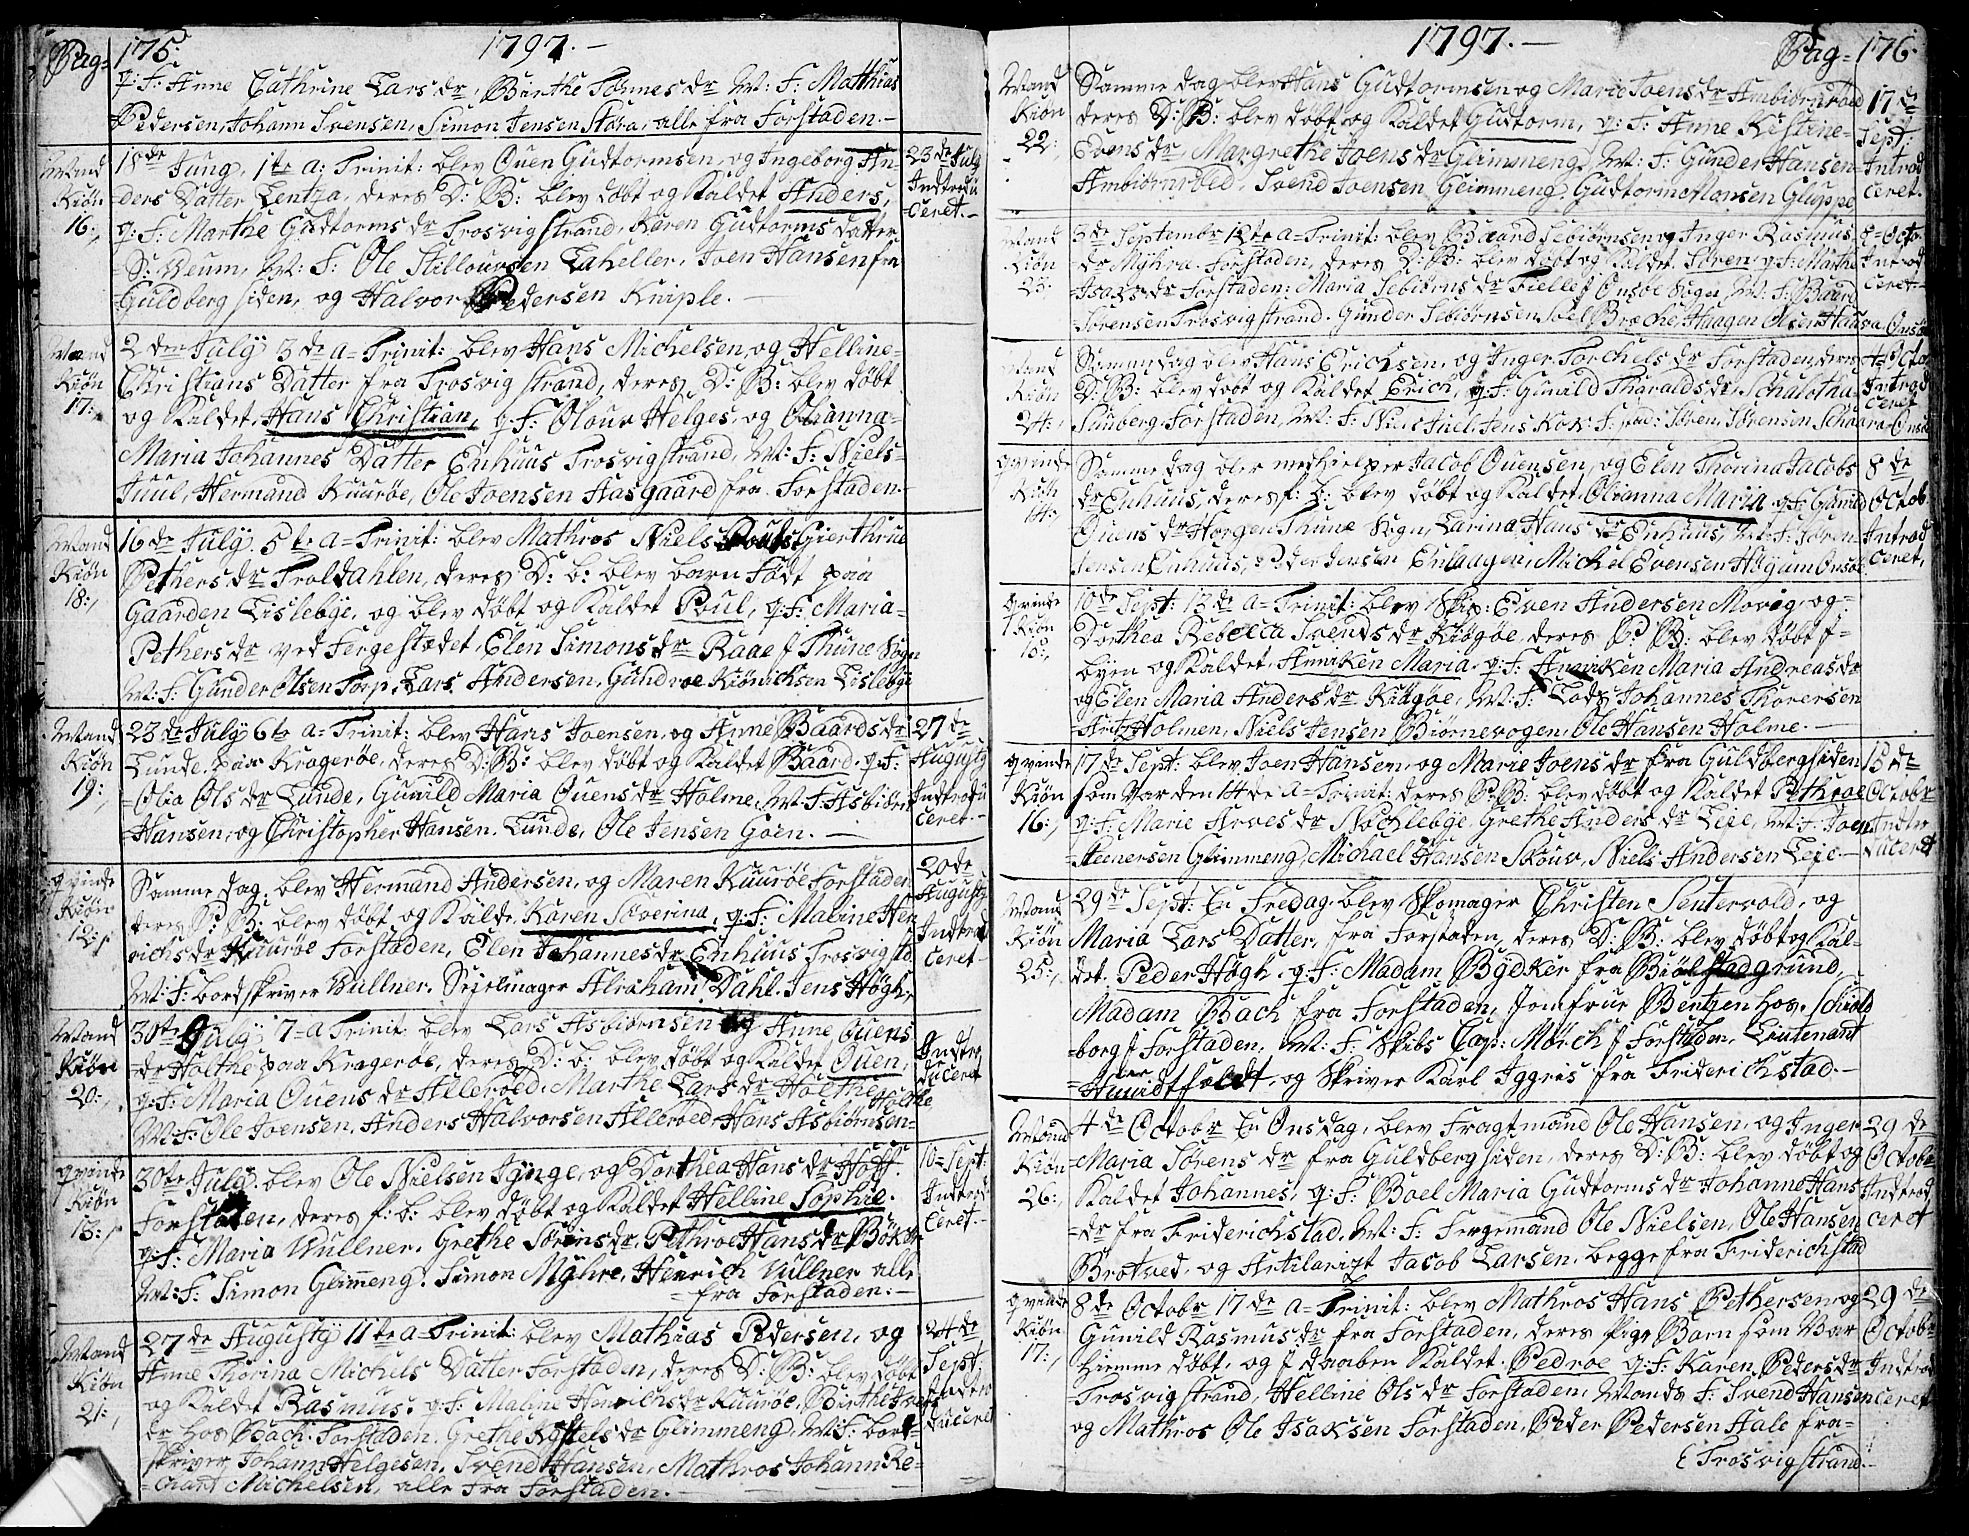 Pag= 175. 1797.-
q: F: Anne Cathrine Lars dr, Birthe Tønnes dr M: F: Matthias
Pedersen, Johann Svensen, Simon Jensen Støra, alle fra Forstaden.-
Mand Kiøn 16:,
18de Juny, 1te a: Trinit: blev Ouen Gudtormsen, og Ingeborg An-
ders Datter Lentza, deres D: B: blev døbt og Kaldet Anders,
q: F: Marthe Gudtorms dr Trosvig strand, Karen Gudtorms datter
S: Veum, M: F: Ole Stillouvsen Laheller, Joen Hansen fra
Guldberg siden, og Halvor Pedersen Kniple.-
23de July
Indtrodu
ceret.-
Mand Kiøn 17:,
2den July 3de a= Trinit: blev Hans Michelsen, og Helline-
Christians Datter fra Trosvig strand, deres D: B: blev døbt
og Kaldet, Hans Christian, q: F: Olouv Helges, og Olianna-
Maria Johannes Datter Enhuus Trosvigstrand, M: F: Niels-
Juul, Hermand Kuurøe, Ole Joensen Aasgaard fra Forstaden.-
Mand Kiøn 18:,
16de July 5te a= Trinit: blev Mathros Niels Gierthrue
Pethers dr Troldahlen, deres D: b: blev barn Født paa
Gaarden Lislebye, og blev døbt og Kaldet Poul, q: F: Maria-
Pethers dr ved Fergestædet, Elen Simons dr Raae f Thune Sogn
M: F: Gunder Olsen Torp, Lars Andersen, Gundroe Kiønichsen Lislebye
Mand Kiøn 19:,
23de July 6te a= Trinit: blev Hans Joensen, og Anne Baards dr
Lunde, paa Kragerøe, deres D: B: blev døbt og Kaldet Baard, q: F:
Olia Ols dr Lunde, Gunild Maria Ouens dr Holme, M: F: Asbiørn
Hansen, og Christopher Hansen Lunde, Ole Jensen Goen.-
27de
Augusty
Indtrodu
ceret.-
qvinde Kiøn 12:,
Samme dag, blev Hermand Andersen, og Maren Kuurøe Forstaden
deres P: B: blev døbt og Kaldt Karen Søverina, q: F: Maline Hen
richs dr Kuurøe Forstaden, Elen Johannes dr Enhuus Trosvig std
M: F: bordskriver Wullner, Sejelmager Abraham Dahl, Jens Høgh,
20de
Augusty
Indtrod
ceret-
Mand Kiøn 20:,
30te July 7-a Trinit: blev Lars Asbiørnsen og Anne Ouens
dr Holthe paa Kragerøe, deres D: b: blev døbt og Kaldet Ouen,
q: F: Maria Ouens dr Allerøed, Marthe Lars dr Holthe
M: F: Ole Joensen, Anders Halvorsen Allerøed, Hans Asbiørnsen- Holthe
Indtro
duceret
qvinde Kiøn 13:,
30te July blev Ole Nielsen, og Dorthea Hans dr Hoff
Forstaden, deres f: b: blev døbt og Kaldet Helline Sophie.
q: F: Maria Wullner, Grethe Sørens dr, Pethroe Hans dr Bøk
M: F: Simon Glimmeng, Simon Myhre, Henrich Vullner alle
fra Forstaden:-
10= Sept:
Indtrod
ceret.-
Mand Kiøn 21:,
27de Augusty 11te a= Trinit: blev Mathias Pedersen, og
Anne Thorina Michels Datter Forstaden, deres D: B: blev døbt
og Kaldet Rasmus, q: F: Maline Henrichs dr Kuurøe, Birthe
dr hos Bach Forstaden, Grethe Kostels dr Glimmeng, M: F: bord-
skriver Johann Helgesen, Svend Hansen, Mathros Johann Re-
chart Michelsen, alle fra Forstaden.-
24de
Sept:
Indtro
duceret
1797.- Pag= 176.
Mand Kiøn 22:,
Samme dag blev Hans Gudtormsen og Marie Joens dr Ambiørnrød
deres D: B: blev døbt og Kaldet Gudtorm, q: F: Anne Kistine-
Evens dr, Margrethe Joens dr Glimmeng, M: F: Gunder Hansen-
Ambiørnrød, Svend Joensen Glimmeng, Gudtorm Monsen Gluppe
17de
Sept:
Introd
ceret.
Mand Kiøn 23:
3de Septembr 12te a= Trinit: blev Baard Sebiørnsen og Inger Rasmus
dr Myhra Forstaden, deres D: B: blev døbt og Kaldet Søren, q: F: Marthe
Isaks dr Forstaden, Maria Sebiørns dr Fielle f Onsøe Sogn, M: F: Baard
Sørensen Trosvig strand, Gunder Sebiørnsen Soel Broche, Haagen Olsen Onsø
Octo
Introd
ceret-
Mand Kiøn 24:,
Samme dag blev Hans Erichsen, og Inger Torchels dr Forstaden, deres
D: B: blev døbt og Kaldet Erich, q: F: Gunild Tharalds dr
Sunberg Forstaden, M: F: Niels Juel, Jens Kok Søren Sørensen
Octo
Introd
ceret
qvinde Kiøn 14:,
Samme dag blev medhielper Jacob Ouensen, og Elen Thorina Jacobs
dr Enhuus, deres f: b: blev døbt og Kaldet Olianna Maria, q: F: Gunild
Ouens dr Horgen Thune Sogn, Larina Hans dr Enhuus, M: F: Søren
Jensen Enhuus, Peder Jensen Enhaugen, Michel Evensen Høgum Onsøe
8de
Octob
Introd
ceret,
qvinde Kiøn 15:,
10de Sept: 13de a= Trinit: blev Skip: Even Andersen Movig, og-
Dorthea Rebecca Svends dr Kiøgøe, deres P: B: blev døbt f-
byen og Kaldet, Anniken Maria, q: F: Anniken Maria Andreas dr
og Elen Maria Anders dr Kiøgøe, M: F: Lods Johannes Thorersen
Aritz Holmen, Niels Jensen Biørnevogen, Ole Hansen Holme.-
qvinde Kiøn 16:,
17de Sept: blev Joen Hansen, og Marie Joens dr fra Guldbergsiden
som Var den 14de a= Trinit: deres P: B: blev døbt og Kaldet Pethroe
q: F: Marie Arves dr Nochlebye, Grethe Anders dr Leie, M: F: Joen
Steenersen Glimmeng, Michael Hansen Skouv, Niels Andersen Leie-
15de
Octobr
Indtro
duceret
Mand Kiøn 25:,
29de Sept: En Fredag, blev Skomager Christen Sentervold, og
Maria Lars Datter, fra Forstaden, deres D: B: blev døbt og Kal-
det. Peder Høgh, q: F: Madam Bydker fra Biølstadgrund,
Madam Bach fra Forstaden, Jomfrue Bentzen hos Schuld
borg f Forstaden, M: F: Skibs Cap: Mørch f Forstaden, Lieutenant
og Skriver Karl Iggres fra Friderichstad.-
Mand Kiøn 26:,
4de Octobr En Onsdag, blev Fragtmand Ole Hansen, og Inger
Maria Sørens dr fra Guldbergsiden, deres D: B: blev døbt og
Kaldet Johannes, q: F: Boel Maria Gudtorms dr Johanne Hans
dr fra Friderichstad, M: F: Fergemand Ole Nielsen, Ole Hansen
Brotved, og Artilarist Jacob Larsen, begge fra Friderichstad
29de
Octobr
Indtrod
ceret
qvinde Kiøn 17:,
8de Octobr 17de a= Trinit: blev Mathros Hans Pethersen, og
Gunild Rasmus dr fra Forstaden, deres Pige Barn som Var
hiemme døbt, og f daaben Kaldet. Pedroe q: F: Karen Peders dr
Trosvig strand, Helline Ols dr Forstaden, Mands F: Svend Hansen
og Mathros Ole Isaksen Forstaden, Peder Pedersen Hale fra-
Trosvig strand.-
29de
Octobr
Indtrod
ceret